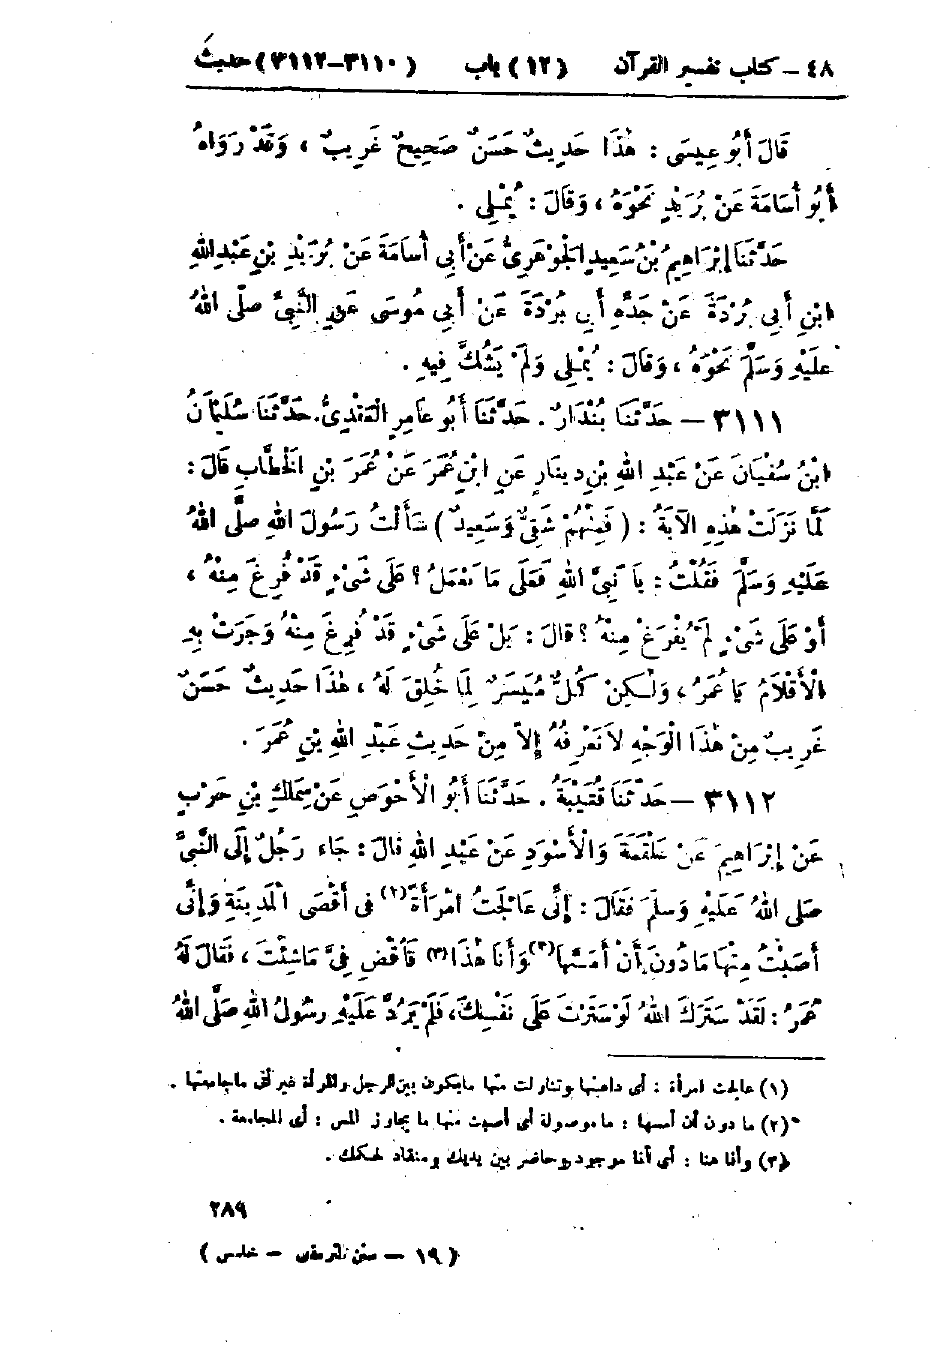 ٤٨ - كتاب تفسير القرآن (١٢) باب (٣١١٠-٣١١٢) حديث
قَالَ أَبُو عِيسَى : هَٰذَا حَدِيثٌ حَسَنٌ صَحِيحٌ غَرِيبٌ ، وَقَدْ رَوَاهُ
أَبُو أُسَامَةَ عَنْ بُرَيْدٍ نَحْوَهُ ، وَقَالَ : يُمْلِي .
حَدَّثَنَا إِبْرَاهِيمُ بْنُ سَعِيدٍ الْجَوْهَرِيُّ عَنْ أَبِي أُسَامَةَ عَنْ بُرَيْدِ بْنِ عَبْدِ اللهِ
ابْنِ أَبِي بُرْدَةَ عَنْ جَدِّهِ أَبِي بُرْدَةَ عَنْ أَبِي مُوسَى عَنِ النَّبِيِّ صَلَّى اللهُ
عَلَيْهِ وَسَلَّمَ نَحْوَهُ ، وَقَالَ : يُمْلِي وَلَمْ يَشُكَّ فِيهِ .
٣١١١ - حَدَّثَنَا بُنْدَارٌ . حَدَّثَنَا أَبُو عَامِرٍ الْعَقَدِيُّ . حَدَّثَنَا سُلَيْمَانُ
ابْنُ سُفْيَانَ عَنْ عَبْدِ اللهِ بْنِ دِينَارٍ عَنِ ابْنِ عُمَرَ عَنْ عُمَرَ بْنِ الْخَطَّابِ قَالَ :
لَمَّا نَزَلَتْ هَٰذِهِ الآيَةُ : ( فَمِنْهُمْ شَقِيٌّ وَسَعِيدٌ ) سَأَلْتُ رَسُولَ اللهِ صَلَّى اللهُ
عَلَيْهِ وَسَلَّمَ فَقُلْتُ : يَا نَبِيَّ اللهِ فَعَلَى مَا نَعْمَلُ ؟ عَلَى شَيْءٍ قَدْ فُرِغَ مِنْهُ ،
أَوْ عَلَى شَيْءٍ لَمْ يُفْرَغْ مِنْهُ ؟ قَالَ : بَلْ عَلَى شَيْءٍ قَدْ فُرِغَ مِنْهُ وَجَرَتْ بِهِ
الْأَقْلَامُ يَا عُمَرُ ، وَلَٰكِنْ كُلٌّ مُيَسَّرٌ لِمَا خُلِقَ لَهُ ، هَٰذَا حَدِيثٌ حَسَنٌ
غَرِيبٌ مِنْ هَٰذَا الْوَجْهِ لَا نَعْرِفُهُ إِلاَّ مِنْ حَدِيثِ عَبْدِ اللهِ بْنِ عُمَرَ .
٣١١٢ - حَدَّثَنَا قُتَيْبَةُ . حَدَّثَنَا أَبُو الْأَحْوَصِ عَنْ سِمَاكِ بْنِ حَرْبٍ
عَنْ إِبْرَاهِيمَ عَنْ عَلْقَمَةَ وَالْأَسْوَدِ عَنْ عَبْدِ اللهِ قَالَ : جَاءَ رَجُلٌ إِلَى النَّبِيِّ
صَلَّى اللهُ عَلَيْهِ وَسَلَّمَ فَقَالَ : إِنِّي عَالَجْتُ امْرَأَةً(١) فِي أَقْصَى الْمَدِينَةِ وَإِنِّي
أَصَبْتُ مِنْهَا مَا دُونَ أَنْ أَمَسَّهَا(٢) وَأَنَا هَٰذَا(٣) فَاقْضِ فِيَّ مَا شِئْتَ ، فَقَالَ لَهُ
عُمَرُ : لَقَدْ سَتَرَكَ اللهُ لَوْ سَتَرْتَ عَلَى نَفْسِكَ ، فَلَمْ يَرُدَّ عَلَيْهِ رَسُولُ اللهِ صَلَّى اللهُ
(١) عالجت امرأة : أى داعبتها وتناولت منها ما يكون بين الرجل والمرأة غير أنى ما جامعتها .
(٢) ما دون أن أمسها : ما موصولة أى أصبت منها ما يجاوز المس : أى المجامعة .
(٣) وأنا هنا : أى أنا موجود وحاضر بين يديك ومنقاد لحكمك .
٢٨٩
( ١٩ - سنن الترمذى - خامس )